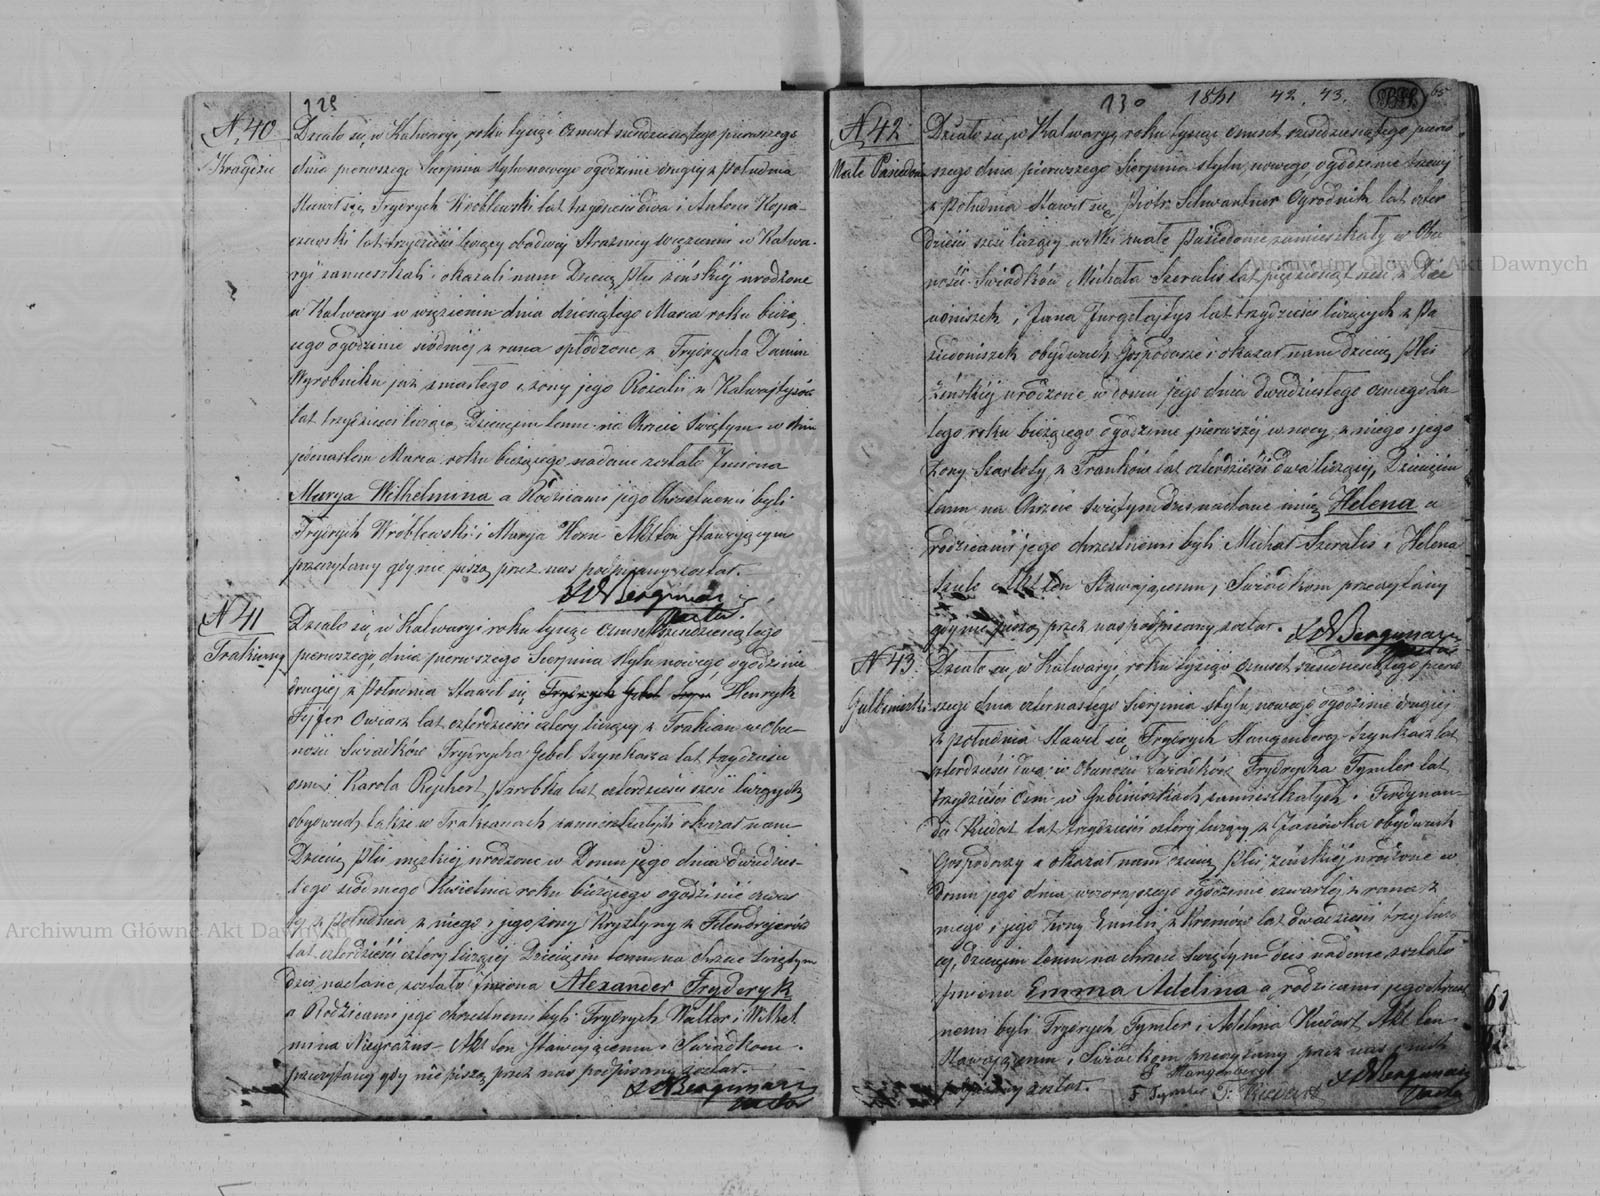 129
N. 40
Kragżdzie
Działo się w Kalwaryi, roku tysiąc ośmset sześćdziesiątego pierwszego
dnia pierwszego Sierpnia stylu nowego o godzinie drugiej z południa
stawił się Frydrych Wróblewski lat trzydzieści dwa i Antoni Kopa-
czewski lat trzydzieści liczący obadwaj Strażnicy więzienni w Kalwa-
ryi zamieszkali i okazali nam Dziecię płci żeńskiéj urodzone
w Kalwaryi w więzieniu dnia dziewiątego Marca roku bieżą-
cego o godzinie siódméj z rana spłodzone z Frydrycha
Wyrobnika już zmarłego i żony jego Rozalii z
lat trzydzieści liczącéj, Dziecięciu temu na Chrzcie Świętym w dniu
jedenastem Marca roku bieżącego nadane zostało Imiona
Marya Wilhelmina a Rodzicami jego Chrzestnemi byli
Frydrych Wróblewski i Marya Horn Akt ten stawiającym
przeczytany gdy nie piszą przez nas podpisany został.
Bergman
Pastor.
N 41
Trakiany
Działo się w Kalwaryi roku tysiąc ośmset sześćdziesiątego
pierwszego, dnia pierwszego Sierpnia stylu nowego, o godzinie
drugiej z Południa stawił się Frydrych Gebel Henryk
Fyfer Owczarz lat czterdzieści cztery liczący z Trakian, w Obe-
ności Świadków Frydrycha Gebel Szynkarza lat trzydzieści
ośm i Karola Rephert, parobka lat czterdzieści sześć liczących
obydwuch także w Trakianach zamieszkałych i okazał nam
Dziecię płci męzkiéj urodzone w Domu jego dnia dwudzies-
tego siódmego Kwietnia roku bieżącego o godzinie czwar-
tej z południa z niego i jego żony Krystyny z
lat czterdzieści cztery liczącéj Dziecięciu temu na chrzcie świętym
dziś nadane zostało Imiona Alexander Frydryk
a Rodzicami jego chrzestnemi byli Frydrych Walter i Wilhel
mina Niegrażus Akt ten stawającemu i Świadkom
przeczytany gdy nie piszą przez nas podpisany został.
Bergman
Pastor
130 1861 42. 43. 65
N. 42
Małe Pasiedonie
Działo się w Kalwaryi, roku tysiąc ośmset sześćdziesiątego pierw-
szego dnia pierwszego Sierpnia stylu nowego, o godzinie trzeciej
z południa stawił się Piotr Schwantner Ogrodnik lat czter
dzieści sześć liczący w małe Pasiedonie zamieszkały w Obe
ności Świadków Michała Szeralis lat pięćdziesiąt
i Jana Jurgelajtys lat trzydzieści liczących z Pa
siedoniszek obydwuch Gospodarze i okazał nam dziecię płci
żeńskiéj urodzone w domu jego dnia dwudziestego ósmego Lu-
tego roku bieżącego o godzinie pierwszéj w nocy z niego i jego
żony Szarloty z Franków lat czterdzieści dwa liczący, Dziecięciu
temu na Chrzcie Świętym dziś nadane imię Helena a
rodzicami jego chrzestnemi byli Michał Szeralis i Helena
Szulc Akt ten Stawającemu i Świadkom przeczytany
gdy nie piszą przez nas podpisany został.
Bergman
Pastor
N 43.
Gulbiniszki
Działo się w Kalwaryi, roku tysiąc ośmset sześćdziesiątego pierw
szego dnia czternastego Sierpnia stylu nowego o godzinie drugiej
z południa stawił się Frydrych Mangenberg Szynkarz lat
czterdzieści dwa w obecności Świadków Frydrycha Tymler lat
trzydzieści ośm w Gulbiniszkach zamieszkałych i Ferdynan-
da Kudat lat trzydzieści cztery liczący z Janówka obydwuch
Gospodarzy i okazał nam dziecię płci żeńskiéj urodzone w
domu jego dnia wczorajszego o godzinie czwartéj z rana z
niego i jego żony Emilii z Kremów lat dwadzieścia trzy liczą
céj, dziecięciu temu na chrzcie świętym dziś nadane zostało
Imiona Emma Adelina a rodzicami jego chrzest
nemi byli Frydrych Tymler i Adelina Kudart Akt ten
stawającemu i Świadkom przeczytany przez nas i nich
podpisany został.
F Mangenberg
F Tymler
Bergman
Pastor
Archiwum Główne Akt Dawnych
Archiwum Główne Akt Dawnych